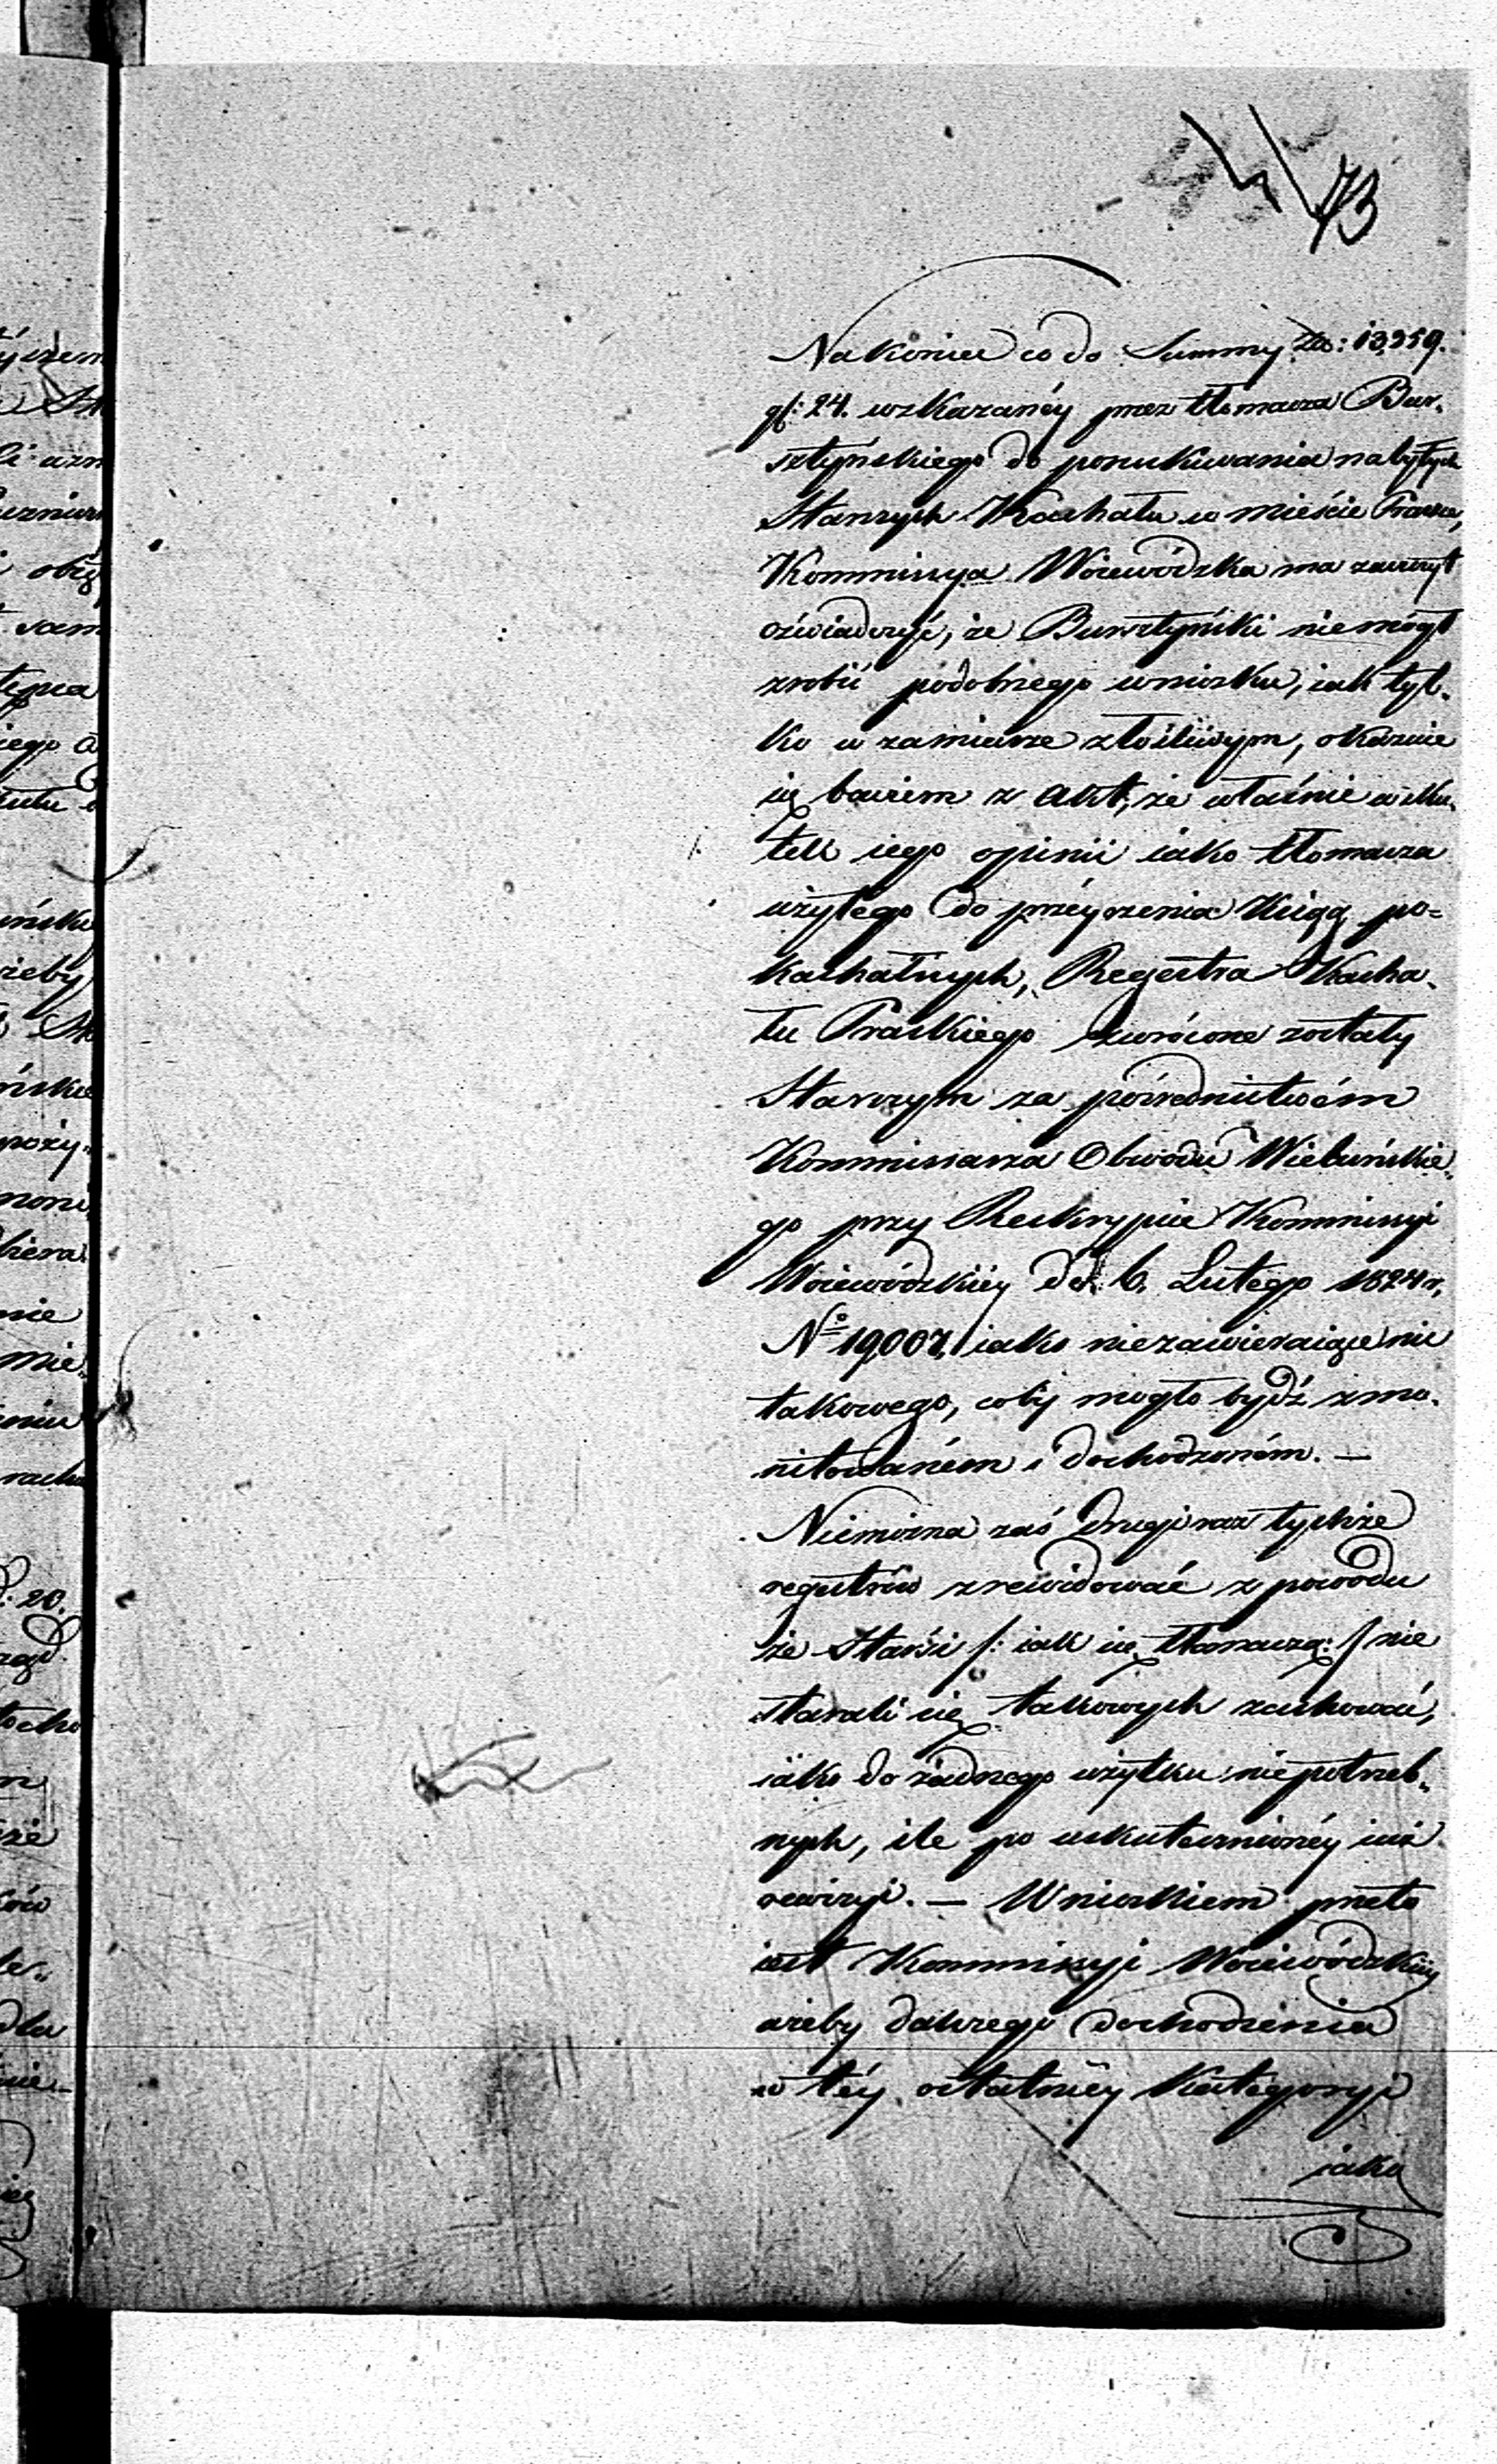 73
Nakoniec co do Summy Złł: 13,259.
gr: 24. wskazanéy przez tłomacza Bur-
sztyńskiego do poszukiwania na byłych
Starszych Kachału w mieście Praszce,
Kommissya Woiewódzka ma zaszczyt
oświadczyć, że Bursztyński niemógł
zrobić podobnego wniosku, iak tyl-
ko w zamiarze złośliwym, okazuie
się bowiem z Akt, że właśnie w sku-
tek iego opinii iako tłomacza
użytego do przéyrzenia Ksiąg po-
kachalnych, Regestra Kacha-
łu Praskiego zwrócone zostały
Starszym za pośrednictwém
Kommissarza Obwodu Wieluńskie-
go przy Reskrypcie Kommissyi
Woiewódzkiéy dd. 6. Lutego 1824 r.
No 19,007, iako niezawieraiące nic
takowego, coby mogło bydź zmo-
nitowaném i dochodzoném. —
Niemożna zaś drugi raz tychże
regestrów zrewidować z powodu
że Starsi /: iak się tłomaczą :/ nie
starali się takowych zachować,
iako do żadnego użytku niepotrzeb-
nych, ile po uskutecznionéy iuż
rewizyi. — Wnioskiem przeto
iest Kommissyi Woiewódzkiéy
ażeby dalszego dochodzenia
w téy ostatniéy Kategoryi
iako